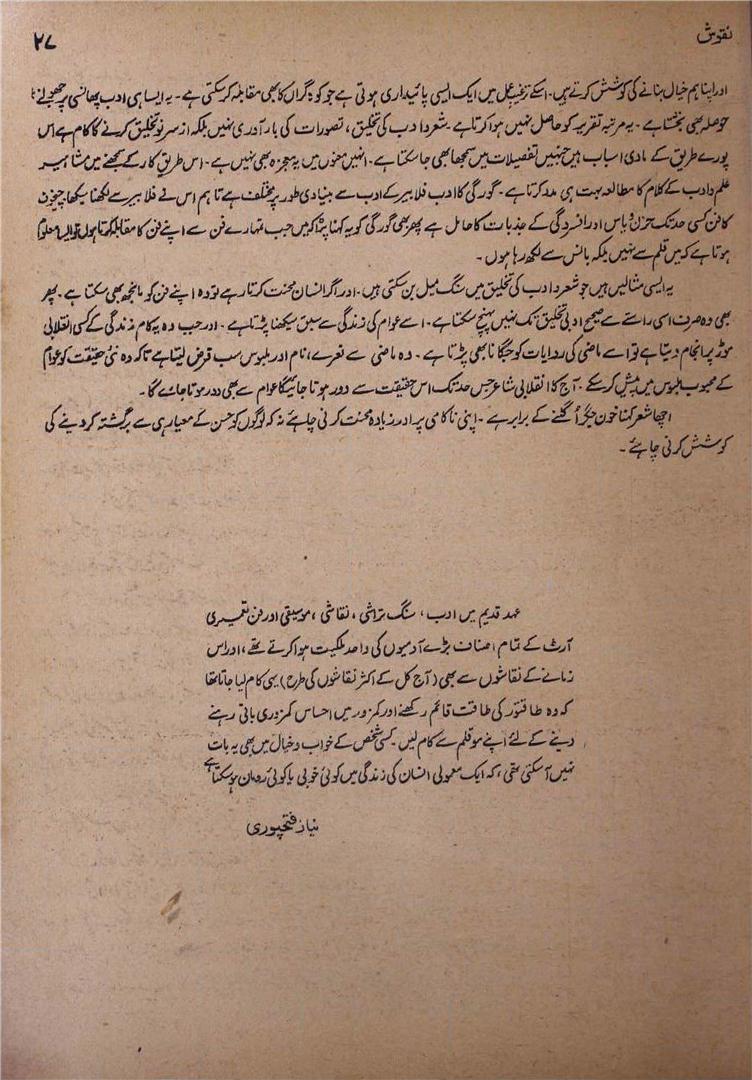 نقوش
۲۷
اور اپنا ہم خیال بنانے کی کوشش کرتے ہیں۔ اسکے ترغیبِ عمل میں ایک ایسی پائیداری ہوتی ہے جو کوہِ گراں کا بھی مقابلہ کر سکتی ہے۔ یہ ایسا ہی ادب پھانسی پر جھولنے کا
حوصلہ بھی بخشتا ہے۔ یہ مرتبہ تقریر کو حاصل نہیں ہوا کرتا ہے۔ شعر و ادب کی تخلیق، تصورات کی بار آوری نہیں بلکہ از سرِ نو تخلیق کرنے کا کام ہے اس
پورے طریق کے مادی اسباب ہیں جنہیں تفصیلات میں سمجھا بھی جا سکتا ہے۔ انہیں معنوں میں یہ معجزہ بھی نہیں ہے۔ اس طریقِ کار کے سمجھنے میں مشاہیر
علم و ادب کے کلام کا مطالعہ بہت ہی مدد کرتا ہے۔ گورگی کا ادب فلابیر کے ادب سے بنیادی طور پر مختلف ہے تاہم اس نے فلابیر سے لکھنا سیکھا، چیخوف
کا فن کسی حد تک حزن و یاس اور افسردگی کے جذبات کا حامل ہے پھر بھی گورگی کو یہ کہنا پڑا کہ میں جب تمہارے فن سے اپنے فن کا مقابلہ کرتا ہوں تو ایسا معلوم
ہوتا ہے کہ میں قلم سے نہیں بلکہ بانس سے لکھ رہا ہوں۔
یہ ایسی مثالیں ہیں جو شعر و ادب کی تخلیق میں سنگِ میل بن سکتی ہیں۔ اور اگر انسان محنت کرتا رہے تو وہ اپنے فن کو مانجھ بھی سکتا ہے۔ پھر
بھی وہ صرف اسی راستے سے صحیح ادبی تخلیق تک نہیں پہنچ سکتا ہے۔ اسے عوام کی زندگی سے سبق سیکھنا پڑتا ہے۔ اور جب وہ یہ کام زندگی کے کسی انقلابی
موڑ پر انجام دیتا ہے تو اسے ماضی کی روایات کو جگانا بھی پڑتا ہے۔ وہ ماضی سے نعرے، نام اور ملبوس سب قرض لیتا ہے تاکہ وہ نئی حقیقت کو عوام
کے محبوب ملبوس میں پیش کر سکے۔ آج کا انقلابی شاعر جس حد تک اس حقیقت سے دور ہوتا جائیگا عوام سے بھی دور ہوتا جائے گا۔
اچھا شعر کہنا خونِ جگر اگلنے کے برابر ہے۔ اپنی ناکامی پر اور زیادہ محنت کرنی چاہئے نہ کہ لوگوں کو حسن کے معیار ہی سے برگشتہ کر دینے کی
کوشش کرنی چاہئے۔
عہد قدیم میں ادب، سنگ تراشی، نقاشی، موسیقی اور فن تعمیری
آرٹ کے تمام اصناف بڑے آدمیوں کی واحد ملکیت ہوا کرتے تھے، اور اس
زمانے کے نقاشوں سے بھی (آج کل کے اکثر نقاشوں کی طرح) یہی کام لیا جاتا تھا
کہ وہ طاقتور کی طاقت قائم رکھنے اور کمزور میں احساس کمزوری باقی رہنے
دینے کے لئے اپنے موقلم سے کام لیں۔ کسی شخص کے خواب و خیال میں بھی یہ بات
نہیں آ سکتی تھی، کہ ایک معمولی انسان کی زندگی میں کوئی خوبی یا کوئی رومان ہو سکتا ہے
نیاز فتحپوری